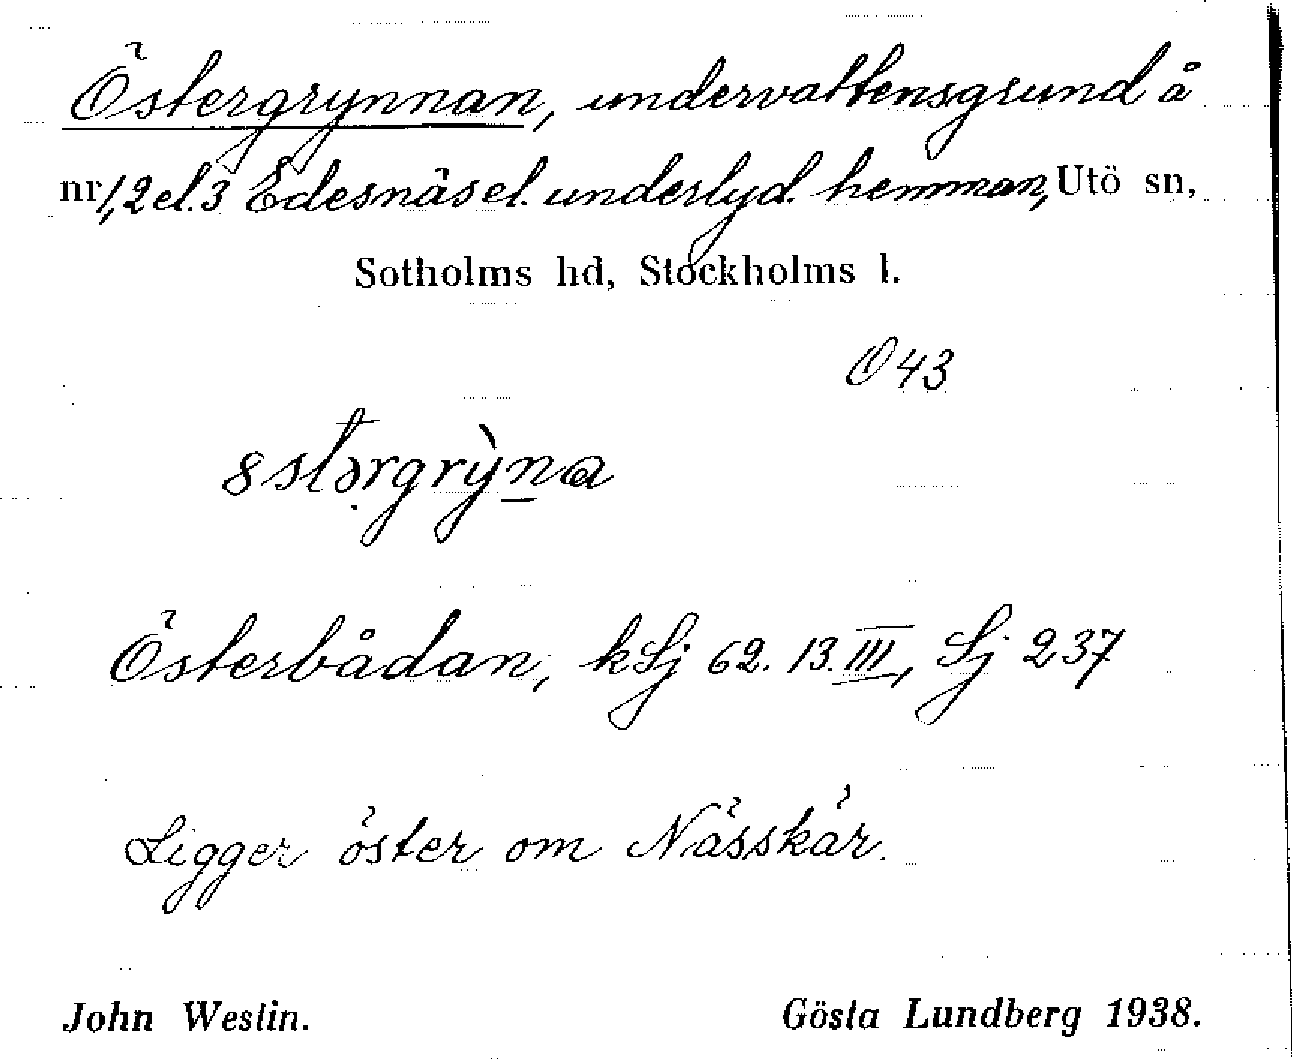 Östergrynnan, undervattensgrund å
nr 1, 2 el. 3 Edesnäs el. underlyd. hemman, Utö sn,
Sotholms hd, Stockholms l.
O 43
8stərgrỳna
Österbådan, kSj 62. 13. III, Sj 237
Ligger öster om Nässkär.
John Westin. Gösta Lundberg 1938.